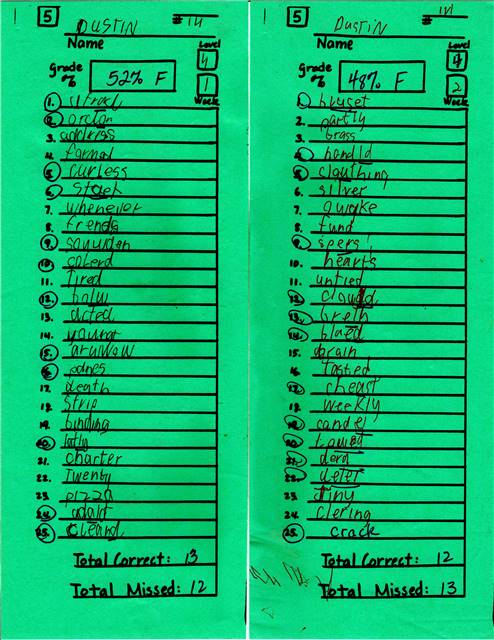 5
DUSTIN
# 14
Name
Level
4
Grade
%
52% F
1
Week
1.
2. arctan
3. address
4. formal
5. curless
6. Stoek
7. whenever
8. frends
9.
10. colerd
11. Tired
12.
13. acted
14.
15. aruwow
16. podnes
17. death
18. Strip
19. binding
20. lofly
21. charter
22. Twenty
23. pizza
24. udalt
25. Cleand
Total Correct: 13
Total Missed: 12
5
DUSTIN
# 14
Name
Level
4
Grade
%
48% F
2
Week
1. bruset
2. partly
3. brass
4. handld
5. clauthing
6. silver
7. quake
8. fund
9. spers
10. hearts
11. untied
12.
13. breth
14. blaed
15. grain
16.
17. cheast
18. weekly
19. candel
20.
21. derd
22. defet
23. tiny
24. clering
25. crack
Total Correct: 12
Total Missed: 13